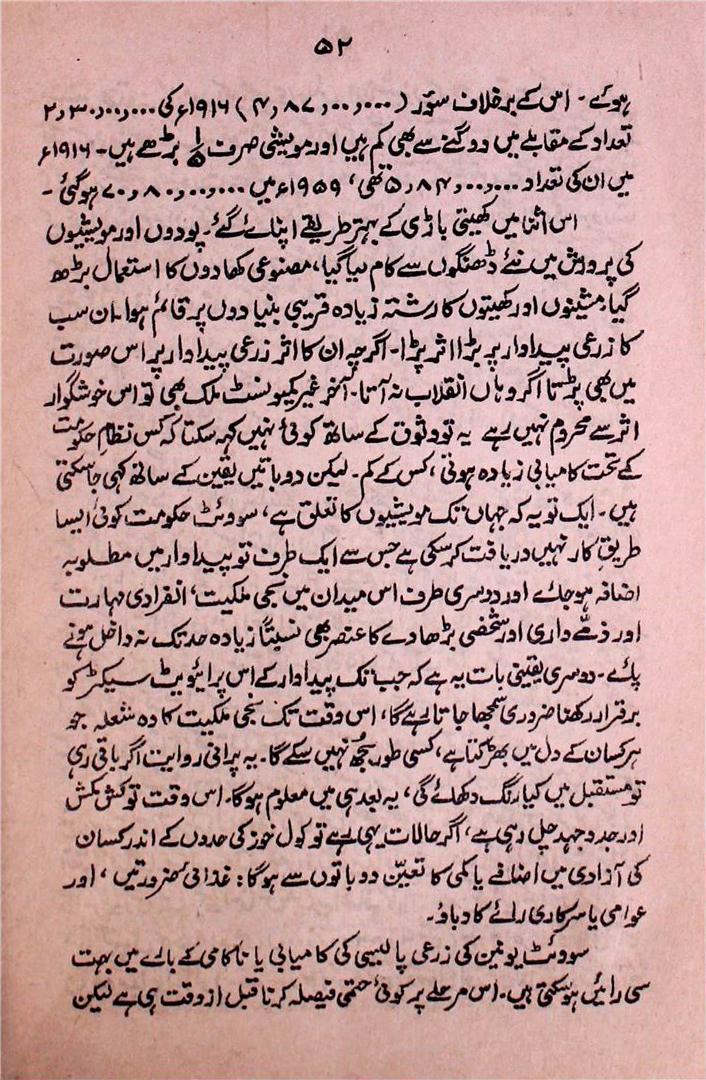 ۵۲
ہوئے۔ اس کے برخلاف سوٗر (۴٫۸۷٫۰۰٫۰۰۰) ۱۹۱۶ء کی ۲٫۳۰٫۰۰٫۰۰۰
تعداد کے مقابلے میں دوگنے سے بھی کم ہیں اور مویشی صرف ⅕ بڑھے ہیں۔ ۱۹۱۶ء
میں ان کی تعداد ۵٫۸۴٫۰۰٫۰۰۰ تھی، ۱۹۵۹ء میں ۷۰٫۸۰٫۰۰٫۰۰۰ ہوگئی۔
اس اثنا میں کھیتی باڑی کے بہتر طریقے اپنائے گئے۔ پودوں اور مویشیوں
کی پرورش میں نئے ڈھنگوں سے کام لیا گیا، مصنوعی کھادوں کا استعمال بڑھ
گیا، مشینوں اور کھیتوں کا رشتہ زیادہ قریبی بنیادوں پر قائم ہوا۔ ان سب
کا زرعی پیداوار پر بڑا اثر پڑا۔ اگرچہ ان کا اثر زرعی پیداوار پر اس صورت
میں بھی پڑتا اگر وہاں انقلاب نہ آتا۔ آخر غیر کمیونسٹ ملک بھی تو اس خوشگوار
اثر سے محروم نہیں رہے یہ تو وثوق کے ساتھ کوئی نہیں کہہ سکتا کہ کس نظامِ حکومت
کے تحت کامیابی زیادہ ہوتی، کس کے کم۔ لیکن دو باتیں یقین کے ساتھ کہی جاسکتی
ہیں۔ ایک تو یہ کہ جہاں تک مویشیوں کا تعلق ہے، سوویٹ حکومت کوئی ایسا
طریقِ کار نہیں دریافت کرسکی ہے جس سے ایک طرف تو پیداوار میں مطلوبہ
اضافہ ہوجائے اور دوسری طرف اس میدان میں نجی ملکیت، انفرادی مہارت
اور ذمّے داری اور شخصی بڑھاوے کا عنصر بھی نسبتاً زیادہ حد تک نہ داخل ہونے
پائے۔ دوسری یقینی بات یہ ہے کہ جب تک پیداوار کے اس پرائیویٹ سیکٹر کو
برقرار رکھنا ضروری سمجھا جاتا رہے گا، اس وقت تک نجی ملکیت کا وہ شعلہ جو
ہر کسان کے دل میں بھڑکتا ہے، کسی طور بجھ نہیں سکے گا۔ یہ پرانی روایت اگر باقی رہی
تو مستقبل میں کیا رنگ دکھائے گی، یہ بعد ہی میں معلوم ہوگا۔ اس وقت تو کش مکش
اور جدوجہد چل رہی ہے، اگر حالات یہی رہے تو کول خوز کی حدوں کے اندر کسان
کی آزادی میں اضافے یا کمی کا تعیّن دو باتوں سے ہوگا: غذائی ضرورتیں، اور
عوامی یا سرکاری رائے کا دباؤ۔
سوویٹ یونین کی زرعی پالیسی کی کامیابی یا ناکامی کے بارے میں بہت
سی رائیں ہوسکتی ہیں۔ اس مرحلے پر کوئی حتمی فیصلہ کرنا قبل از وقت ہی ہے لیکن